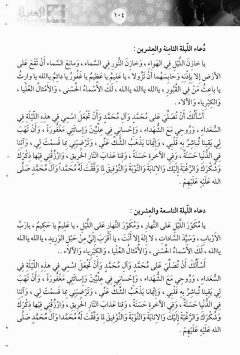 ١٠٤
دُعاء اللّيلة الثامنة والعشرين :
يا خازِنَ اللَّيْلِ فِي الهَواءِ ، وَخازِنَ النُّورِ فِي السَّماءِ ، وَمانِعَ السَّماءِ أَنْ تَقَعَ عَلَى
الأَرْضِ إلا بِإِذْنِهِ وَحابِسَهُما أَنْ تَزُولا ، يا عَلِيمُ يا عَظِيمُ يا غَفُورُ يا دائِمُ يا اللهُ يا وارِثُ
يا باعِثَ مَنْ فِي القُبُورِ ، يا اللهُ يا اللهُ يا اللهُ ، لَكَ الأَسْماءُ الحُسْنى ، وَالأَمْثالُ العُلْيا ،
وَالكِبْرِياءُ وَالآلاءُ .
أَسْأَلُكَ أَنْ تُصَلِّيَ عَلى مُحَمَّدٍ وَآلِ مُحَمَّدٍ وَأَنْ تَجْعَلَ اسْمِي فِي هذِهِ اللَّيْلَةِ فِي
السُّعَداءِ ، وَرُوحِي مَعَ الشُّهَداءِ ، وَإِحْسانِي فِي عِلِّيِّينَ وَإِساءَتِي مَغْفُورَةً ، وَأَنْ تَهَبَ
لِي يَقِيناً تُباشِرُ بِهِ قَلْبِي ، وَإِيْماناً يَذْهَبُ الشَّكُّ عَنِّي ، وَتُرْضِيَنِي بِما قَسَمْتَ لِي ، وَآتِنا
فِي الدُّنْيا حَسَنَةً ، وَفِي الآخِرَةِ حَسَنَةً ، وَقِنا عَذابَ النَّارِ الحَرِيقِ ، وَارْزُقْنِي فِيها ذِكْرَكَ
وَشُكْرَكَ وَالرَّغْبَةَ إِلَيْكَ وَالإِنابَةَ وَالتَّوْبَةَ وَالتَّوْفِيقَ لِما وَفَّقْتَ لَهُ مُحَمَّداً وَآلَ مُحَمَّدٍ صَلَّى
اللهُ عَلَيْهِ وَعَلَيْهِمْ .
دعاء اللّيلة التاسعة والعشرين :
يا مُكَوِّرَ اللَّيْلِ عَلَى النَّهارِ ، وَمُكَوِّرَ النَّهارِ عَلَى اللَّيْلِ ، يا عَلِيمُ يا حَكِيمُ ، يا رَبَّ
الأَرْبابِ ، وَسَيِّدَ السّاداتِ ، لا إِلهَ إِلاّ أَنْتَ ، يا أَقْرَبَ إِلَيَّ مِنْ حَبْلِ الوَرِيدِ ، يا اللهُ يا اللهُ
يا اللهُ ، لَكَ الأَسْماءُ الحُسْنى ، وَالأَمْثالُ العُلْيا ، وَالكِبْرِياءُ وَالآلاءُ .
أَسْأَلُكَ أَنْ تُصَلِّيَ عَلى مُحَمَّدٍ وَآلِ مُحَمَّدٍ وَأَنْ تَجْعَلَ اسْمِي فِي هذِهِ اللَّيْلَةِ فِي
السُّعَداءِ ، وَرُوحِي مَعَ الشُّهَداءِ ، وَإِحْسانِي فِي عِلِّيِّينَ وَإِساءَتِي مَغْفُورَةً ، وَأَنْ تَهَبَ لِي
يَقِيناً تُباشِرُ بِهِ قَلْبِي ، وَإِيْماناً يَذْهَبُ الشَّكُّ عَنِّي ، وَتُرْضِيَنِي بِما قَسَمْتَ لِي ، وَآتِنا
فِي الدُّنْيا حَسَنَةً ، وَفِي الآخِرَةِ حَسَنَةً ، وَقِنا عَذابَ النَّارِ الحَرِيقِ ، وَارْزُقْنِي فِيها ذِكْرَكَ
وَشُكْرَكَ وَالرَّغْبَةَ إِلَيْكَ وَالإِنابَةَ وَالتَّوْبَةَ وَالتَّوْفِيقَ لِما وَفَّقْتَ لَهُ مُحَمَّداً وَآلَ مُحَمَّدٍ صَلَّى
اللهُ عَلَيْهِ وَعَلَيْهِمْ .